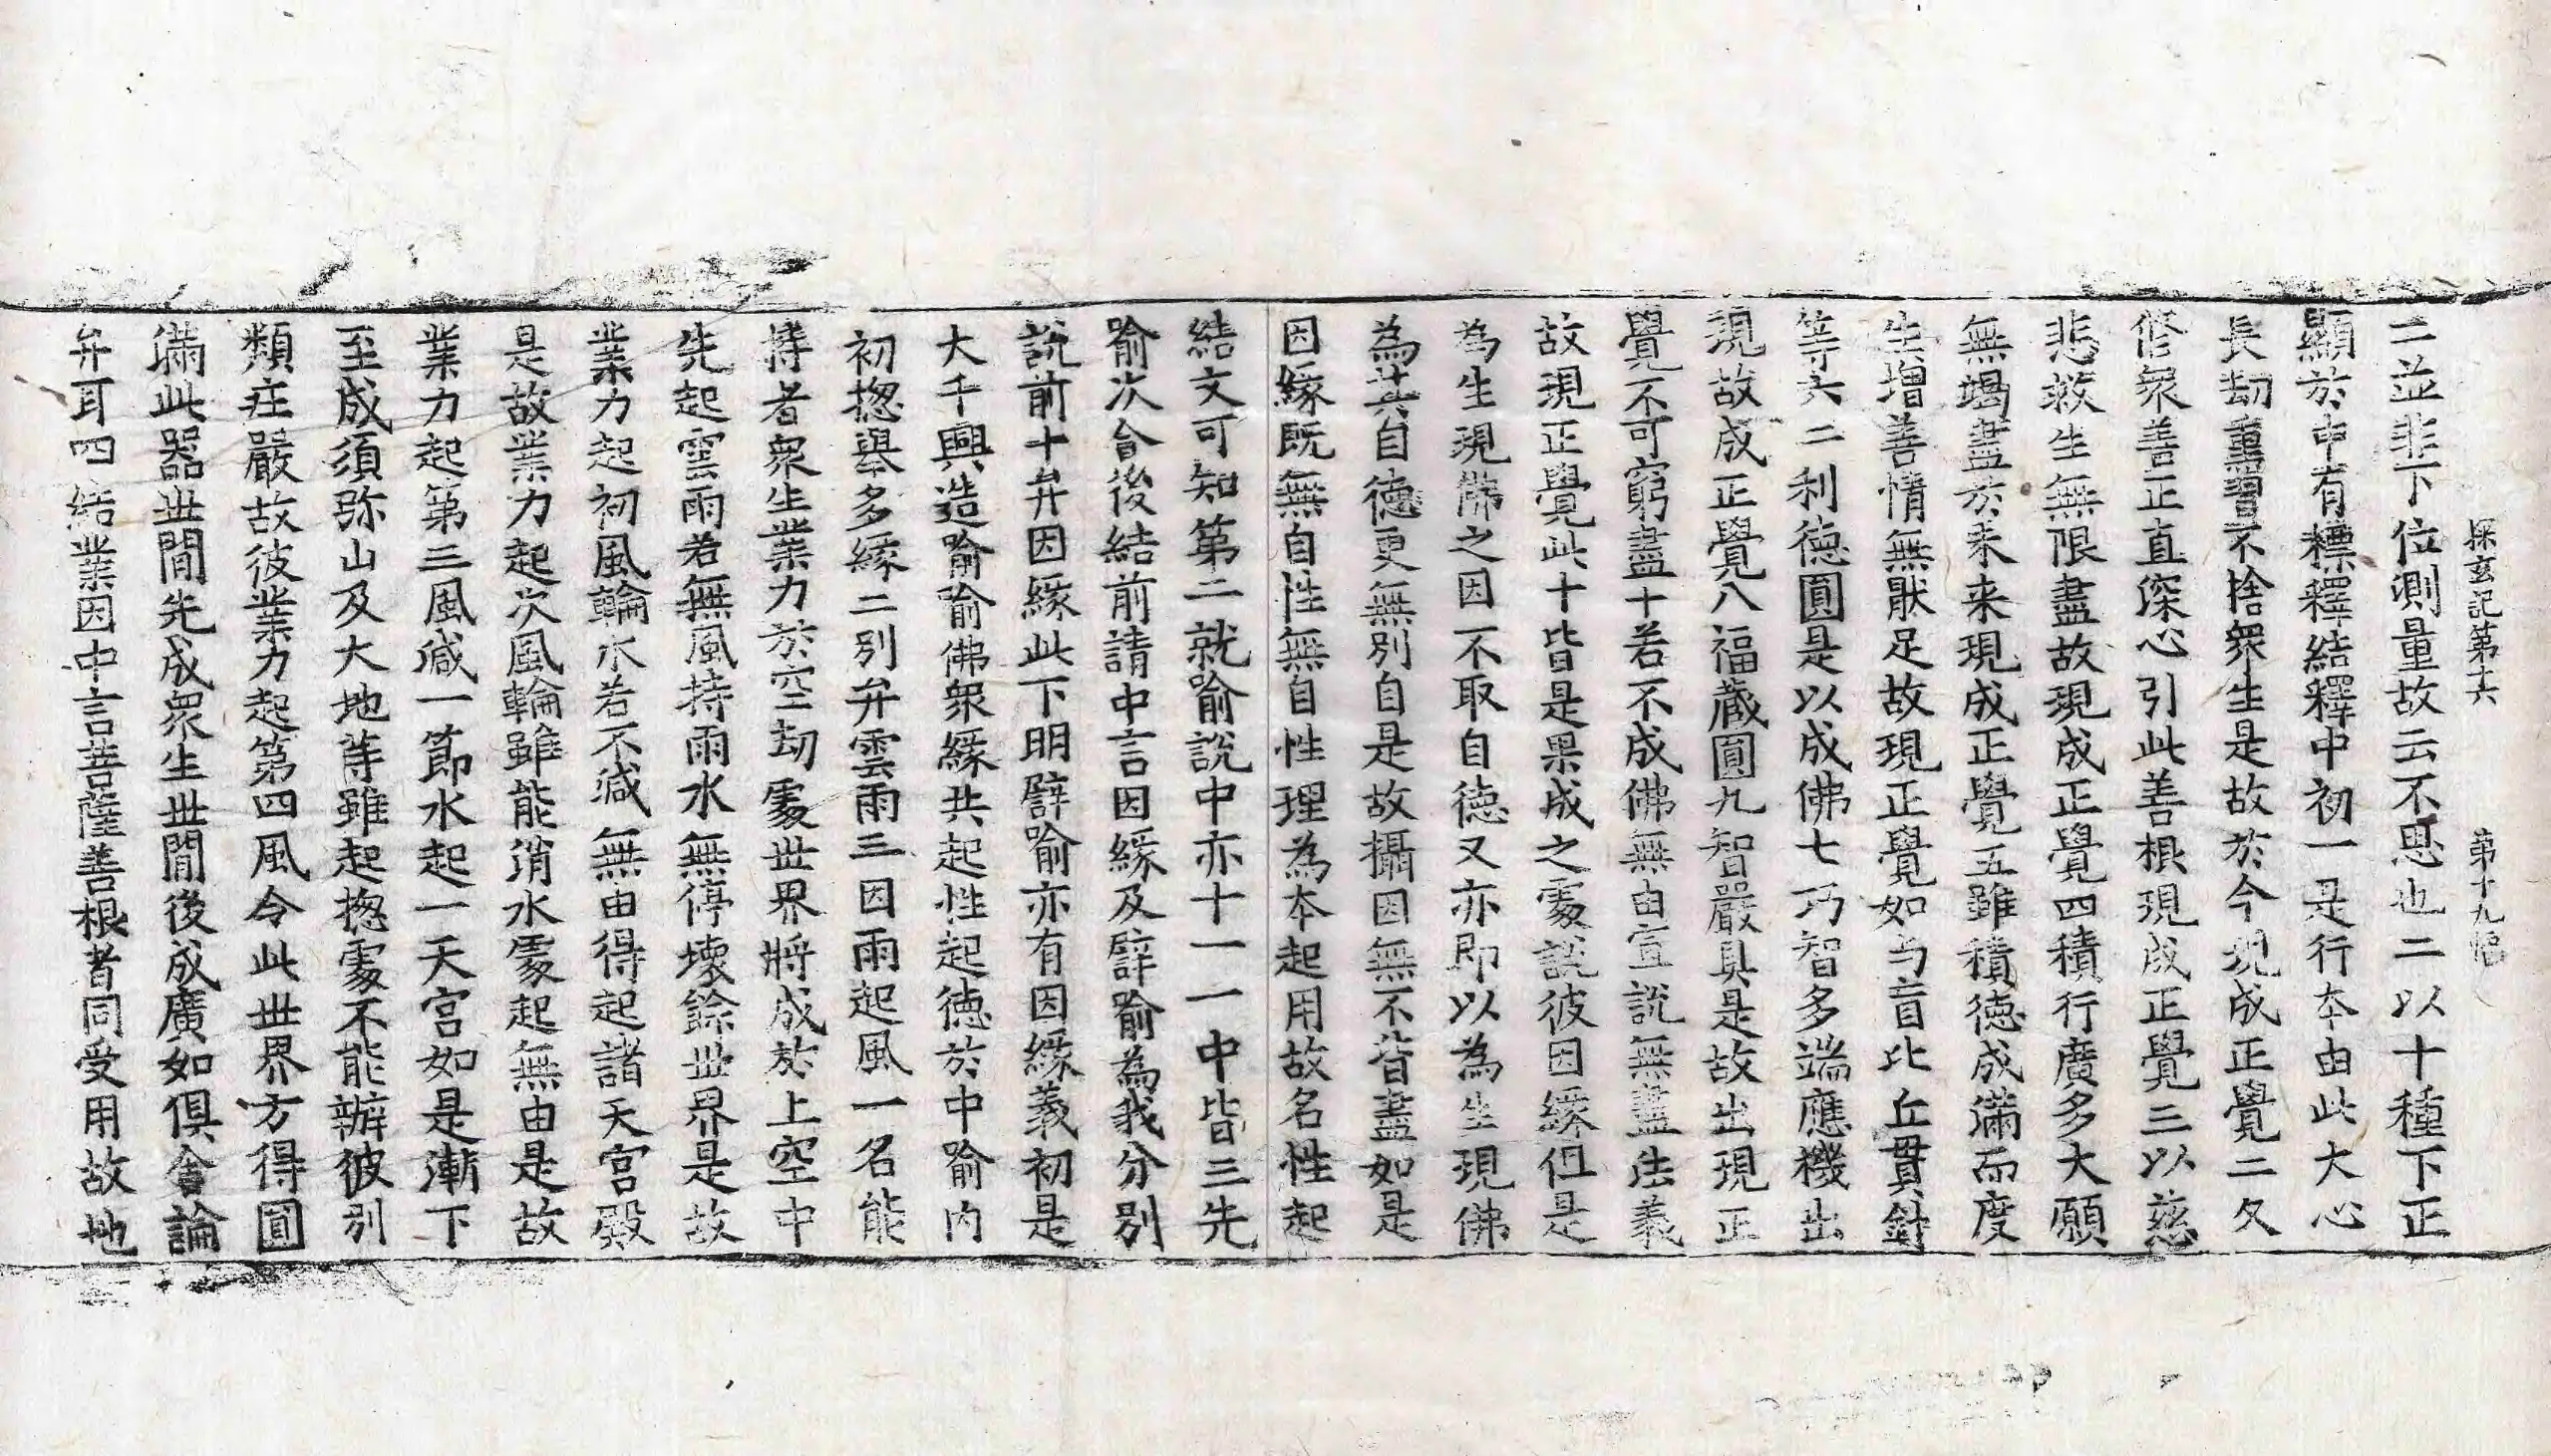 探玄記第十六　第十九幅
二並非下位測量故云不思也二以十種下正
顯於中有標釋結釋中初一是行本由此大心
長劫重習不捨衆生是故於今現成正覺二久
修衆善正直深心引此善根現成正覺三以慈
悲救生無限盡故現成正覺四積行廣多大願
無竭盡於未来現成正覺五雖積德成滿而度
生增善情無猒足故現正覺如与盲比丘貫針
等六二利德圓是以成佛七巧智多端應機出
現故成正覺八福蔵圓九智嚴具是故出現正
覺不可窮盡十若不成佛無由宣說無盡法義
故現正覺此十皆是果成之處說彼因緣但是
為生現佛之因不取自德又亦即以為生現佛
為其自德更無別自是故攝因無不皆盡如是
因緣既無自性無自性理為本起用故名性起
結文可知第二就喻說中亦十一一中皆三先
喻次合後結前請中言因緣及譬喻為我分別
說前十弁因緣此下明譬喻亦有因緣義初是
大千興造喻喻佛衆緣共起性起德於中喻内
初揔舉多緣二別弁雲雨三因雨起風一名能
持者衆生業力於空劫處世界將成於上空中
先起雲雨若無風持雨水無停壊餘世界是故
業力起初風輪水若不減無由得起諸天宮殿
是故業力起次風輪雖能消水處起無由是故
業力起第三風減一節水起一天宮如是漸下
至成須弥山及大地等雖起揔處不能辦彼別
類疘嚴故彼業力起第四風令此世界方得圓
滿此器世間先成衆生世間後成廣如俱舍論
弁耳四結業因中言菩薩善根者同受用故地